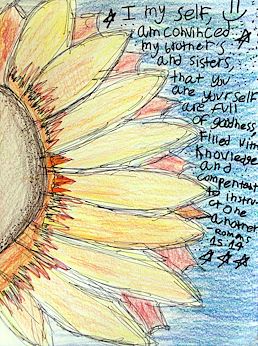 I my self,
am convinced
my brother's
and sisters,
that you
are your self
are full
of goodness
Filled with
Knowledge
and
compentent
to instru-
ct One
another
- Romans
15:14